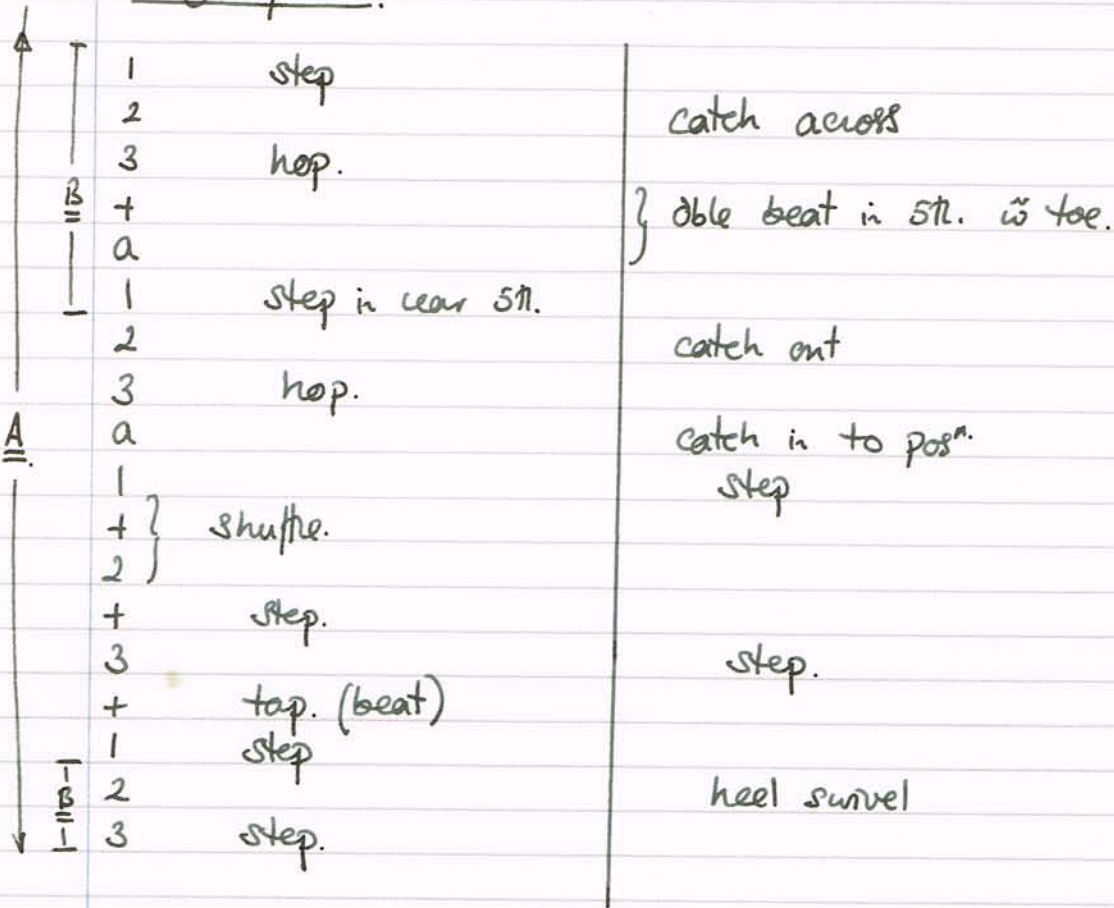 1 step
2 catch across
3 hop.
+ } dble beat in 5th. w̃ toe.
B
a
1 step in rear 5th.
2 catch out
3 hop.
A.
a catch in to posⁿ.
1 step
+ } shuffle.
2
+ step.
3 step.
+ tap. (beat)
1 step
B
2 heel swivel
3 step.